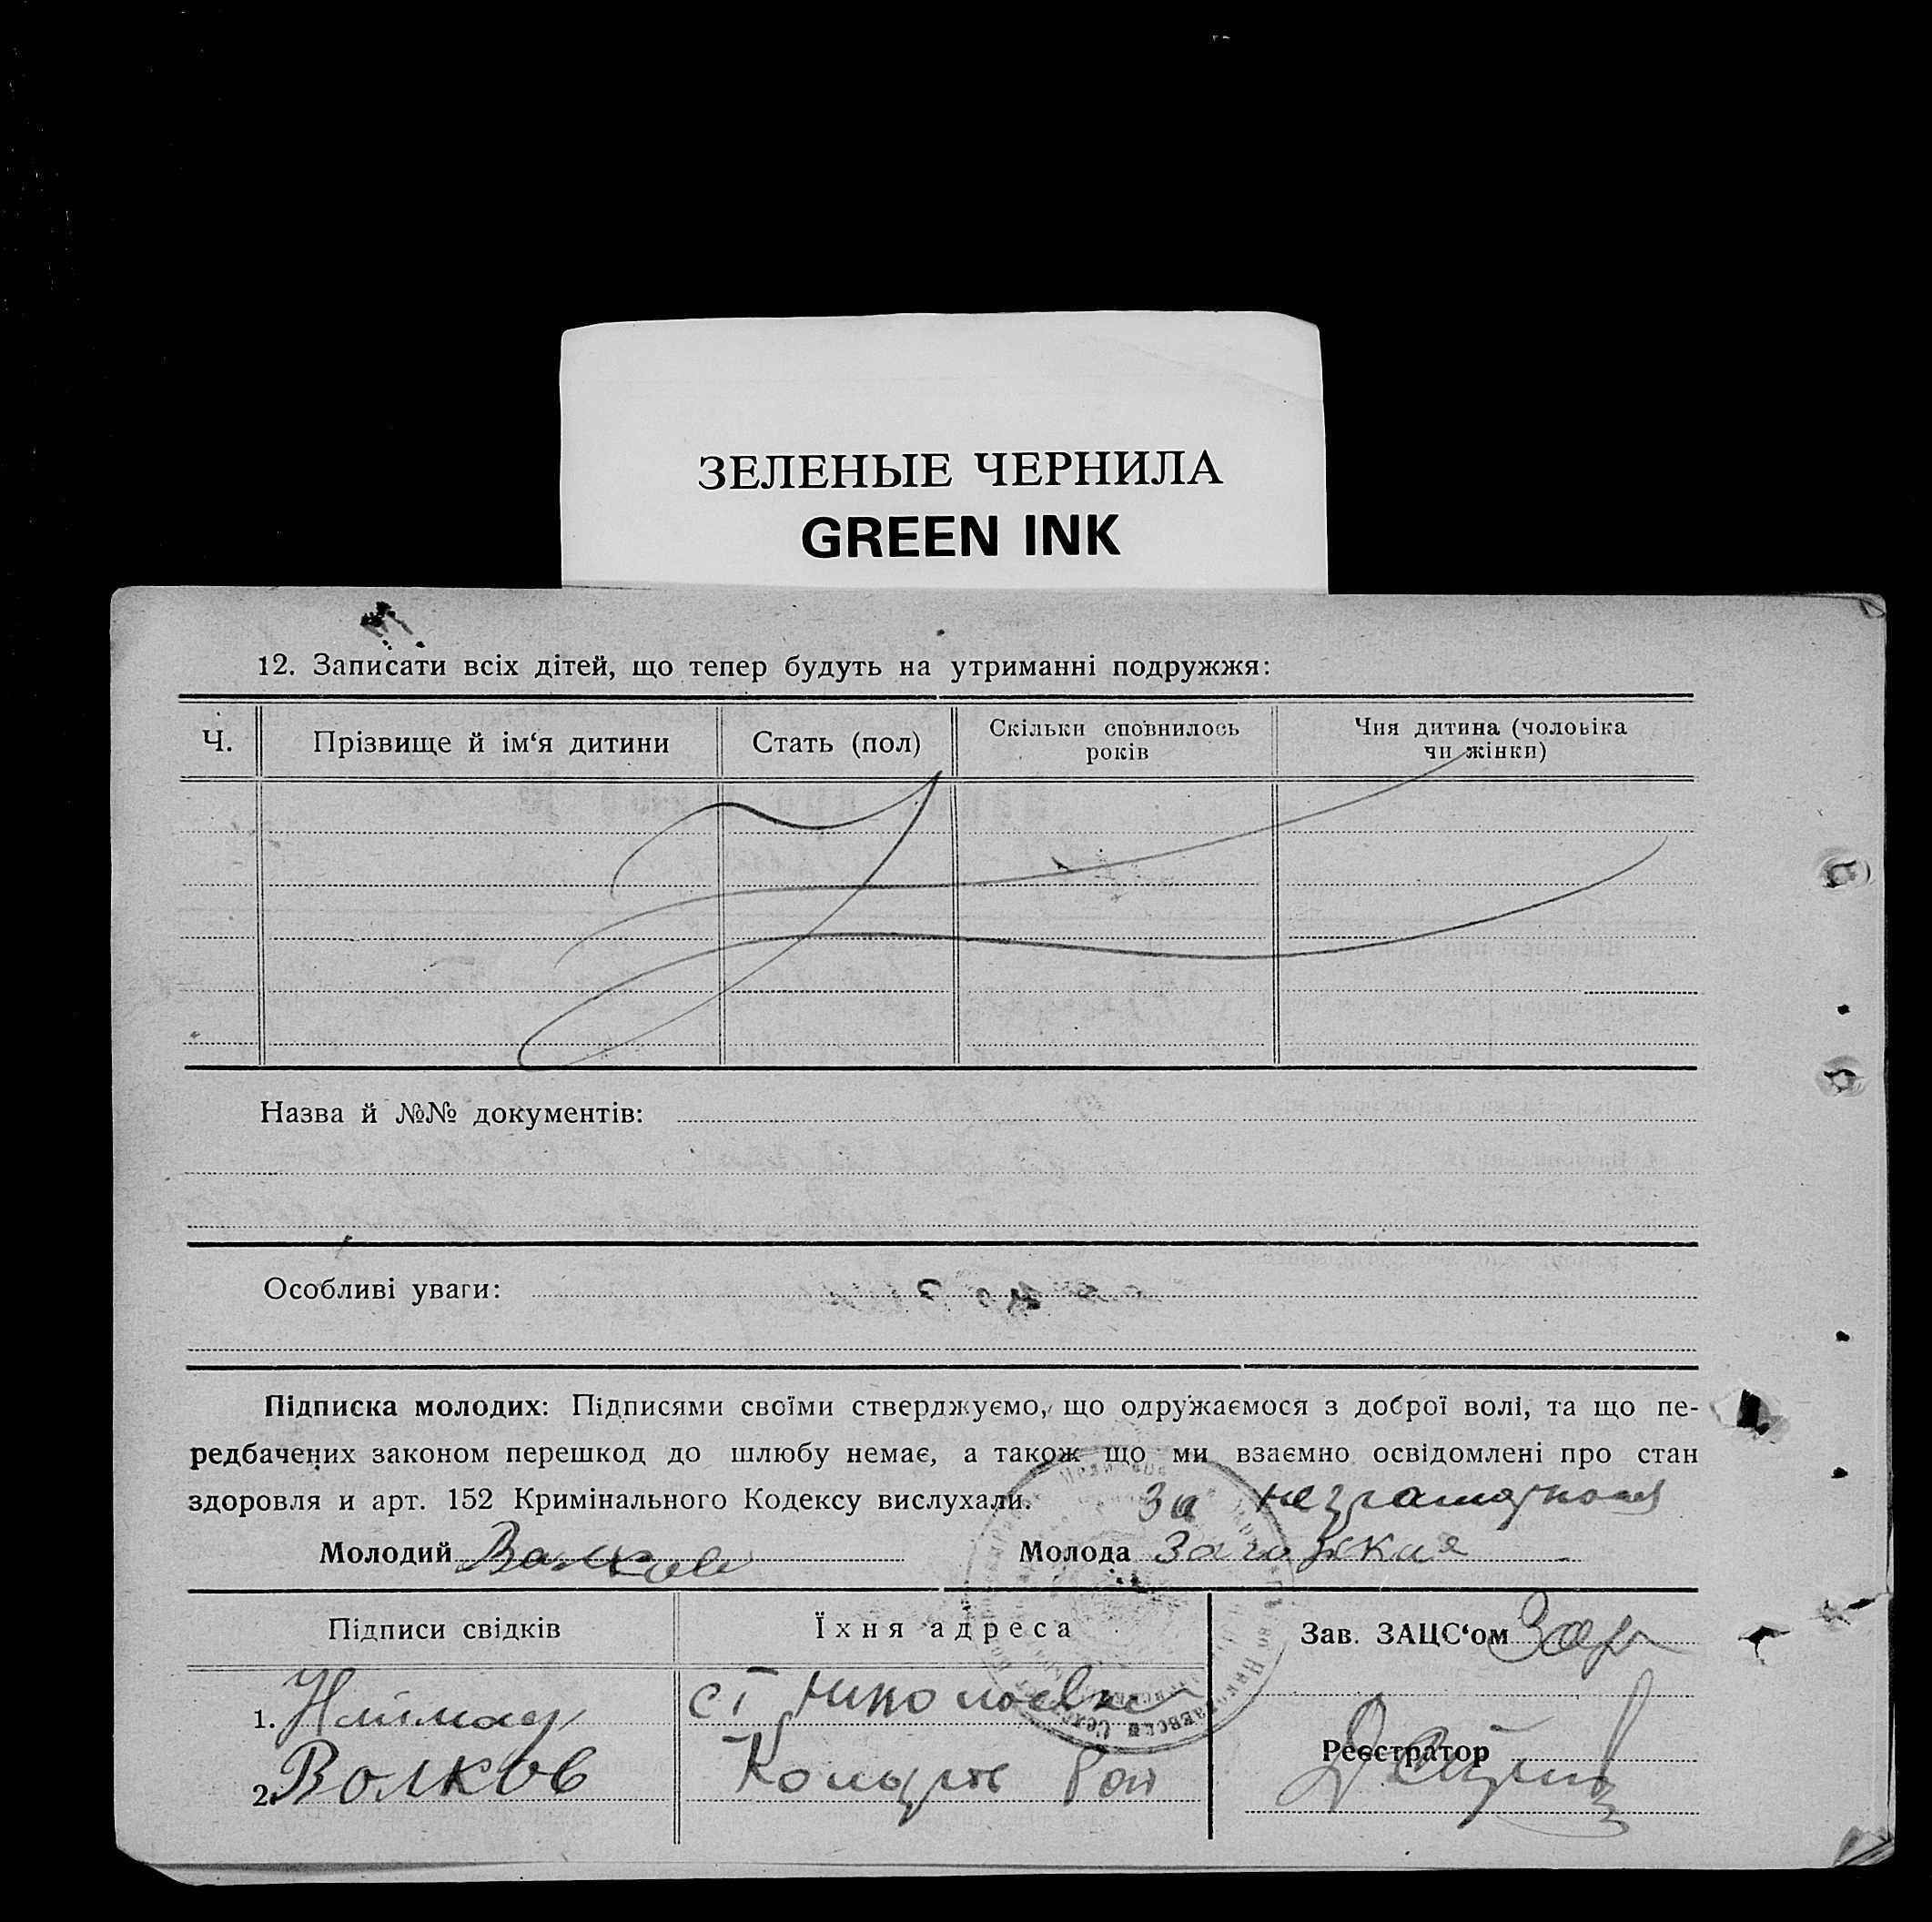 ЗЕЛЕНЫЕ ЧЕРНИЛА
GREEN INK
12. Записати всіх дітей, що тепер будуть на утриманні подружжя:
Ч. Прізвище й ім‘я дитини Стать (пол) Скільки сповнилось років Чия дитина (чоловіка чи жінки)
Назва й №№ документів:
Особливі уваги:
Підписка молодих: Підписями своїми стверджуємо, що одружаємося з доброї волі, та що пе-
редбачених законом перешкод до шлюбу немає, а також що ми взаємно освідомлені про стан
здоровля и арт. 152 Кримінального Кодексу вислухали.
За
Молодий Волков Молода
Підписи свідків Їхня адреса Зав. ЗАЦС‘ом
1. ст
Реєстратор
2. Волков